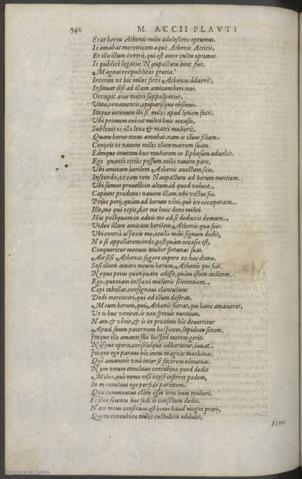 540
M. ACCII PLAVTI
Erat herus Athenis mihi adolescens optumus.
Is amabat meretricem Athenis Atticis,
Et illa illum contrà, qui est amor cultu optumus.
Is publicè legatus Naupactum fuit
Magnai reipublicae gratia.
Interim hic miles fortè Athenas aduenit,
Insinuat sese ad illam amicam heri mei.
Occepit eius matri suppalparier,
Vino, ornamentis, opiparisque obsoniis.
Itaque intimum ibi se miles apud lenam facit.
Vbi primum euenit militi huic occasio,
Sublinit os illi lenae matri mulieris,
Quam herus meus amabat. nam is illius filiam
Coniicit in nauem miles clam matrem suam.
Eamque inuitam huc mulierem in Ephesum aduehit.
Ego quanti citius possum, mihi nauem paro,
Vbi amicam herilem Athenis auectam scio.
Inscendo, ut eam rem Naupactum ad herum nuntiem.
Vbi sumus prouecti in altum, id quod volunt,
Capiunt praedones nauem illam, ubi vectus fui.
Prius perii, quàm ad herum veni, quò ire occeperam.
Ille, me qui cepit, dat me huic dono militi.
Hic postquam in aedeis me ad se deduxit domum,
Video illam amicam herilem, Athenis quae fuit.
Vbi contrà aspexit me, oculis mihi signum dedit,
Ne se appellarem. inde, postquam occasio est,
Conqueritur mecum mulier fortunas suas.
Ait sese Athenas fugere cupere ex hac domu.
Sese illum amare meum herum, Athenis qui fuit.
Neque peius quenquam odisse, quàm istum militem.
Ego, quoniam inspexi mulieris sententiam,
Cepi tabellas, consignaui clanculum:
Dedi mercatori, qui ad illum deferat,
Meum herum, qui Athenis fuerat, qui hanc amauerat,
Vt is huc veniret. is non spreuit nuntium.
Nam & venit, & is in proximo hîc deuortitur
Apud suum paternum hospitem, lepidum senem.
Itaque illi amanti suo hospiti morem gerit.
Nosque opera, consilioque adhortatur, iuuat.
Itaque ego paraui hîc intus magnas machinas,
Quî amanteis unà inter se facerem conuenas.
Nam unum conclaue concubinae quod dedit
Miles, quò nemo nisi eapse inferret pedem,
In eo conclaui ego perfodi parietem,
Qua commeatus clàm esset hinc huc mulieri.
Et sene sciente hoc feci. is consilium dedit.
Nam meus conseruus est homo haud magni preti,
Quem concubinae miles custodem addidit,